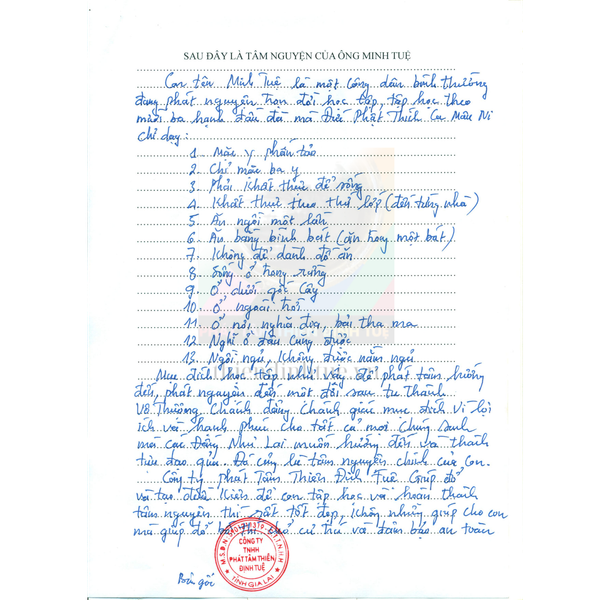 SAU ĐÂY LÀ TÂM NGUYỆN CỦA ÔNG MINH TUỆ
Con tên Minh Tuệ là một công dân bình thường
đang phát nguyện trọn đời học tập, tập học theo
mười ba hạnh đầu đà mà Đức Phật Thích Ca Mâu Ni
chỉ dạy:
1. Mặc y phấn tảo
2. Chỉ mặc ba y
3. Phải khất thực để sống
4. Khất thực theo thứ lớp (đến từng nhà)
5. Ăn ngồi một lần
6. Ăn bằng bình bát (ăn trong một bát)
7. Không để dành đồ ăn
8. Sống ở trong rừng
9. Ở dưới gốc cây
10. Ở ngoài trời
11. Ở nơi nghĩa địa, bãi tha ma
12. Nghỉ ở đâu cũng được
13. Ngồi ngủ, không được nằm ngủ
Mục đích học tập như vậy để phát tâm hướng
đến, phát nguyện đến một đời sau tu thành
Vô Thượng Chánh đẳng Chánh giác mục đích vì lợi
ích và hạnh phúc cho tất cả mọi chúng sanh
mà các Đấng Như Lai muốn hướng đến và thành
tựu đạo quả. Đó cũng là tâm nguyện chính của con.
Công ty phát Tâm Thiền Định Tuệ Giúp đỡ
và tạo điều kiện để con tập học và hoàn thành
tâm nguyện thì rất tốt đẹp, không những giúp cho con
mà giúp đỡ bộ hành cư thú và đảm bảo an toàn
CÔNG TY
TNHH
PHÁT TÂM THIỀN
ĐỊNH TUỆ
TỈNH GIA LAI
Bản gốc